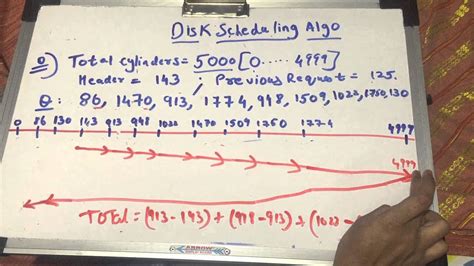 Disk Scheduling Algo
Q) Total cylinders = 5000 [0.....4999]
Header = 143, Previous Request = 125.
Q: 86, 1470, 913, 1774, 948, 1509, 1022, 1750, 130
0 86 130 143 913 948 1022 1470 1509 1750 1774 4999
4999
Total = (913-143) + (948-913) + (1022-